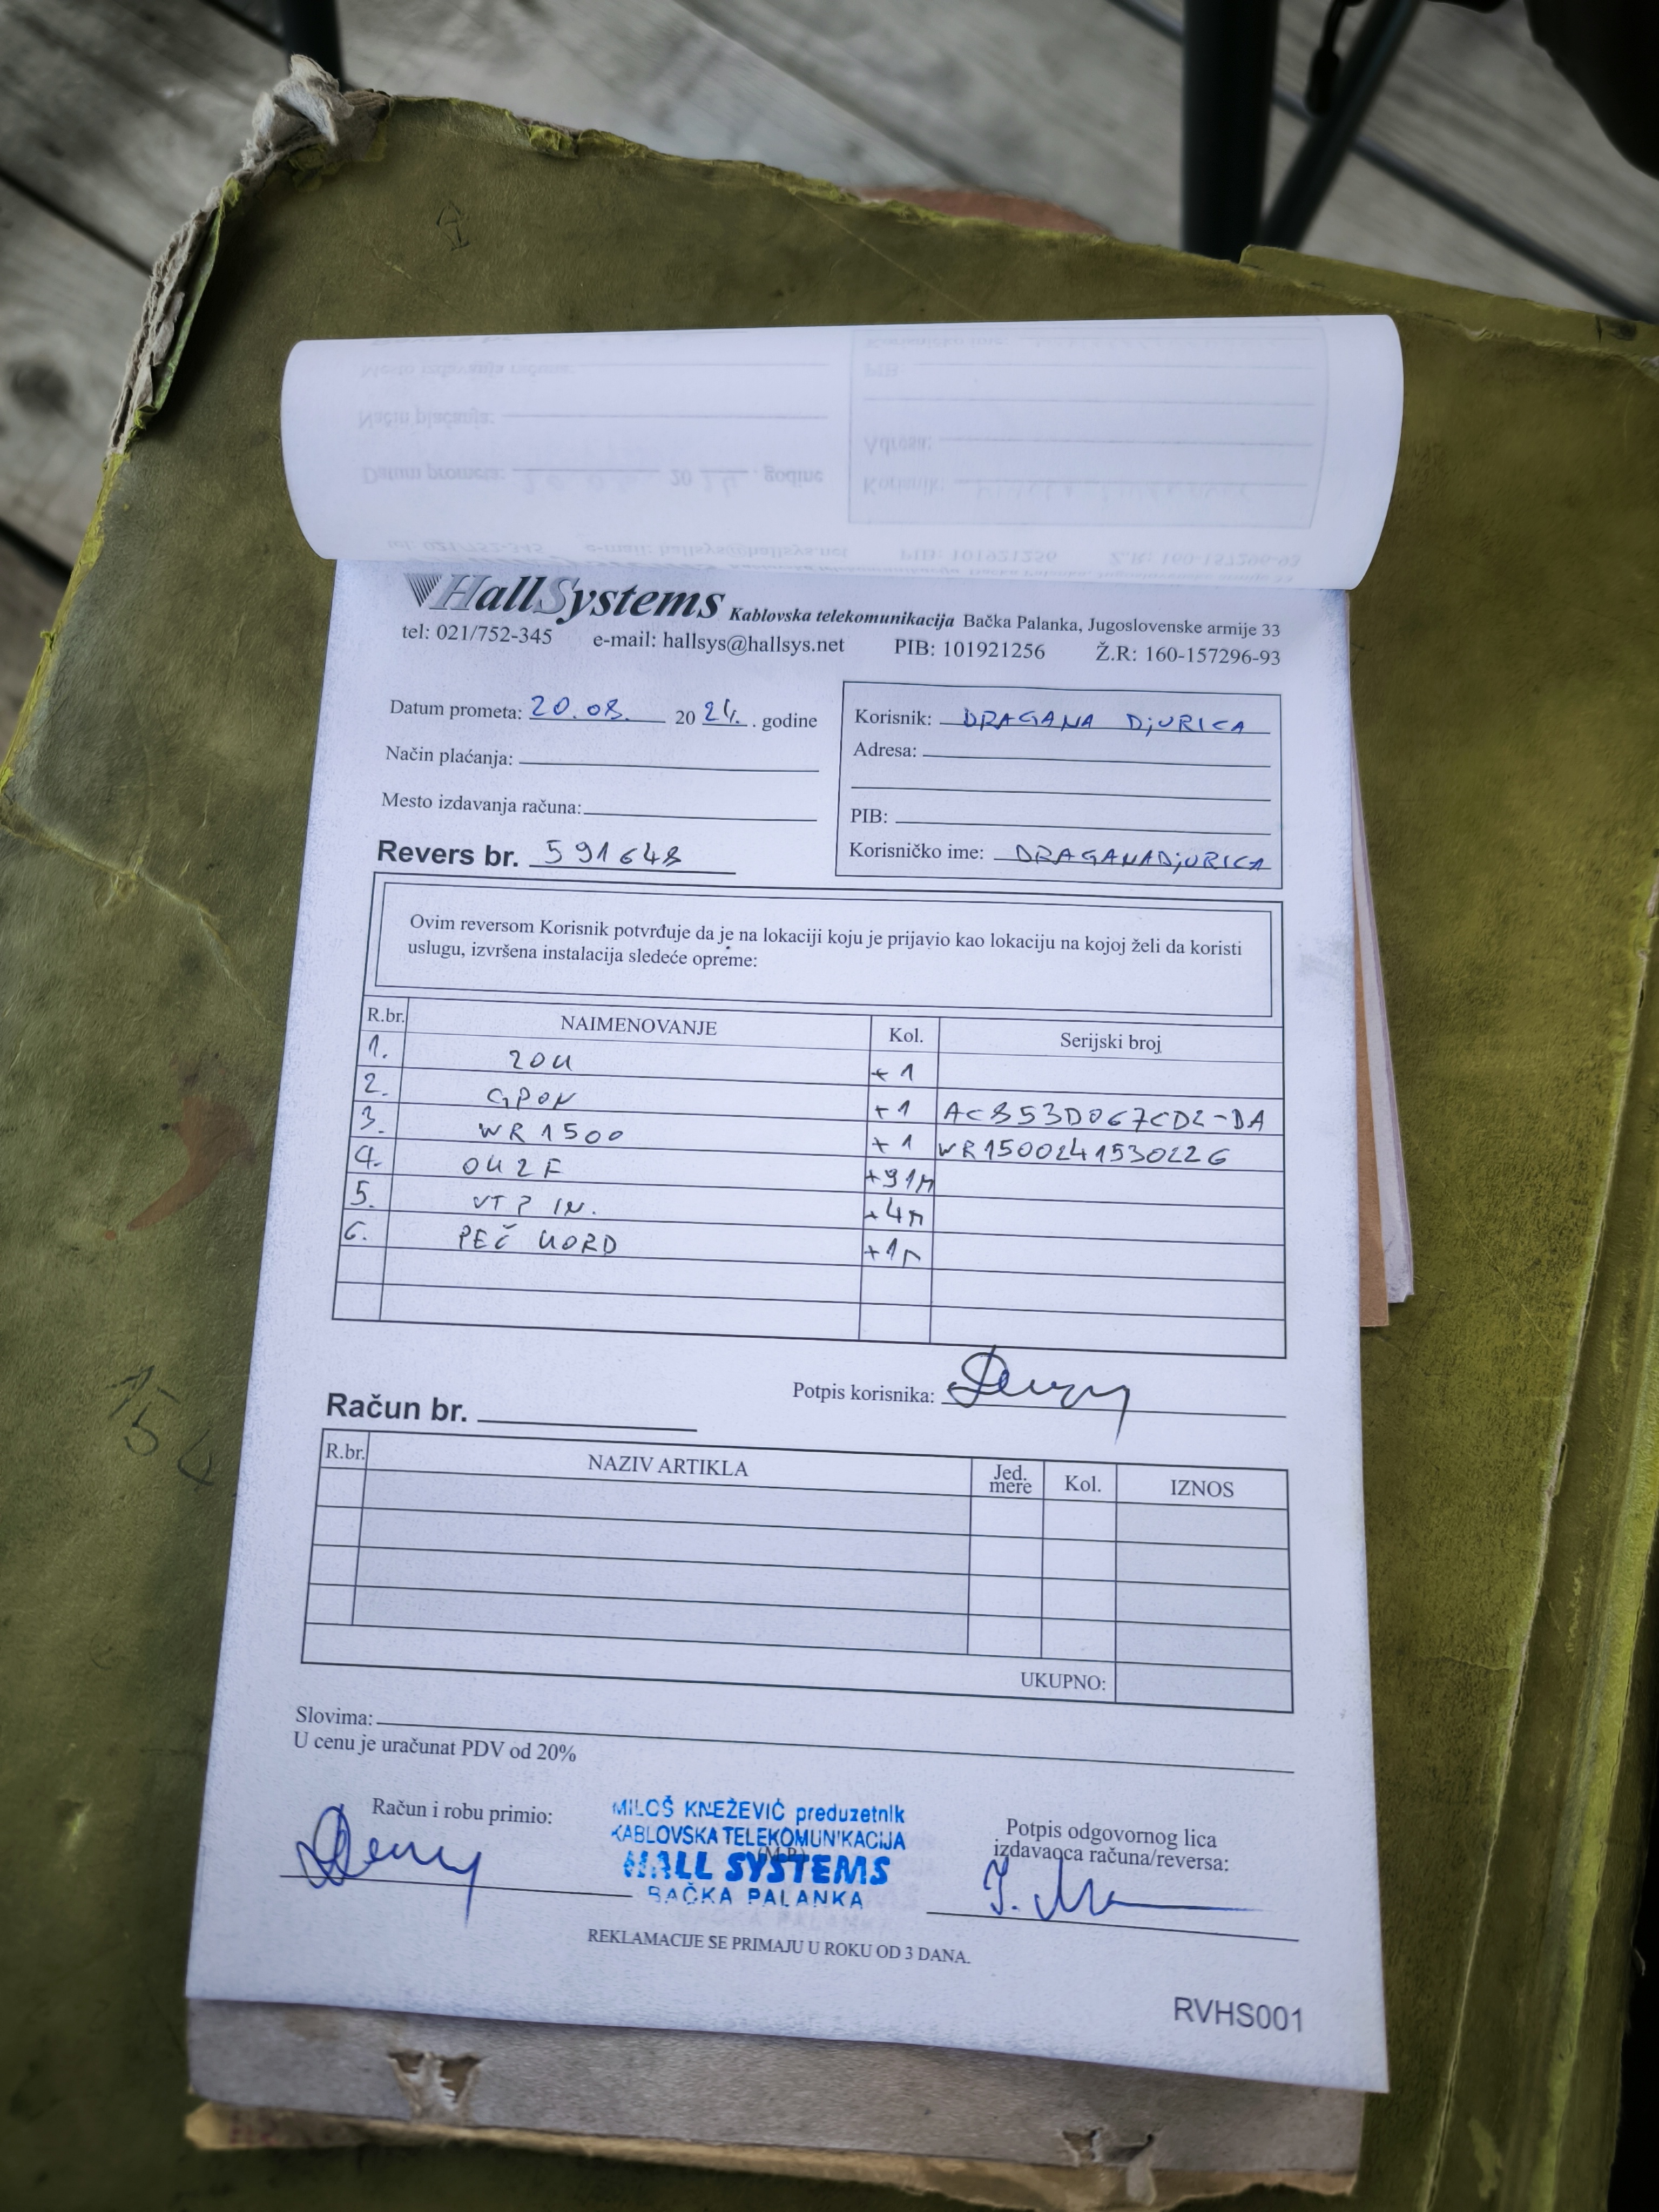 HallSystems Kablovska telekomunikacija Bačka Palanka, Jugoslovenske armije 33
tel: 021/752-345 e-mail: hallsys@hallsys.net PIB: 101921256 Ž.R: 160-157296-93
Datum prometa: 20.08. 20 24. . godine
Način plaćanja:
Mesto izdavanja računa:
Korisnik: DRAGANA DjURICA
Adresa:
PIB:
Korisničko ime: DRAGANADjURICA
Revers br. 591648
Ovim reversom Korisnik potvrđuje da je na lokaciji koju je prijavio kao lokaciju na kojoj želi da koristi
uslugu, izvršena instalacija sledeće opreme:
R.br. NAIMENOVANJE Kol. Serijski broj
1. ZOK +1
2. GPON +1 AC853D067CD2-DA
3. WR1500 +1 WR1500241530226
4. OK2F +91M
5. UTP IN. +4M
6. PEČ KORD +1
Potpis korisnika:
Račun br.
R.br. NAZIV ARTIKLA Jed. mere Kol. IZNOS
UKUPNO:
Slovima:
U cenu je uračunat PDV od 20%
Račun i robu primio:
MILOŠ KNEŽEVIĆ preduzetnik
KABLOVSKA TELEKOMUNIKACIJA
(M.P.)
HALL SYSTEMS
BAČKA PALANKA
Potpis odgovornog lica
izdavaoca računa/reversa:
REKLAMACIJE SE PRIMAJU U ROKU OD 3 DANA.
RVHS001
154